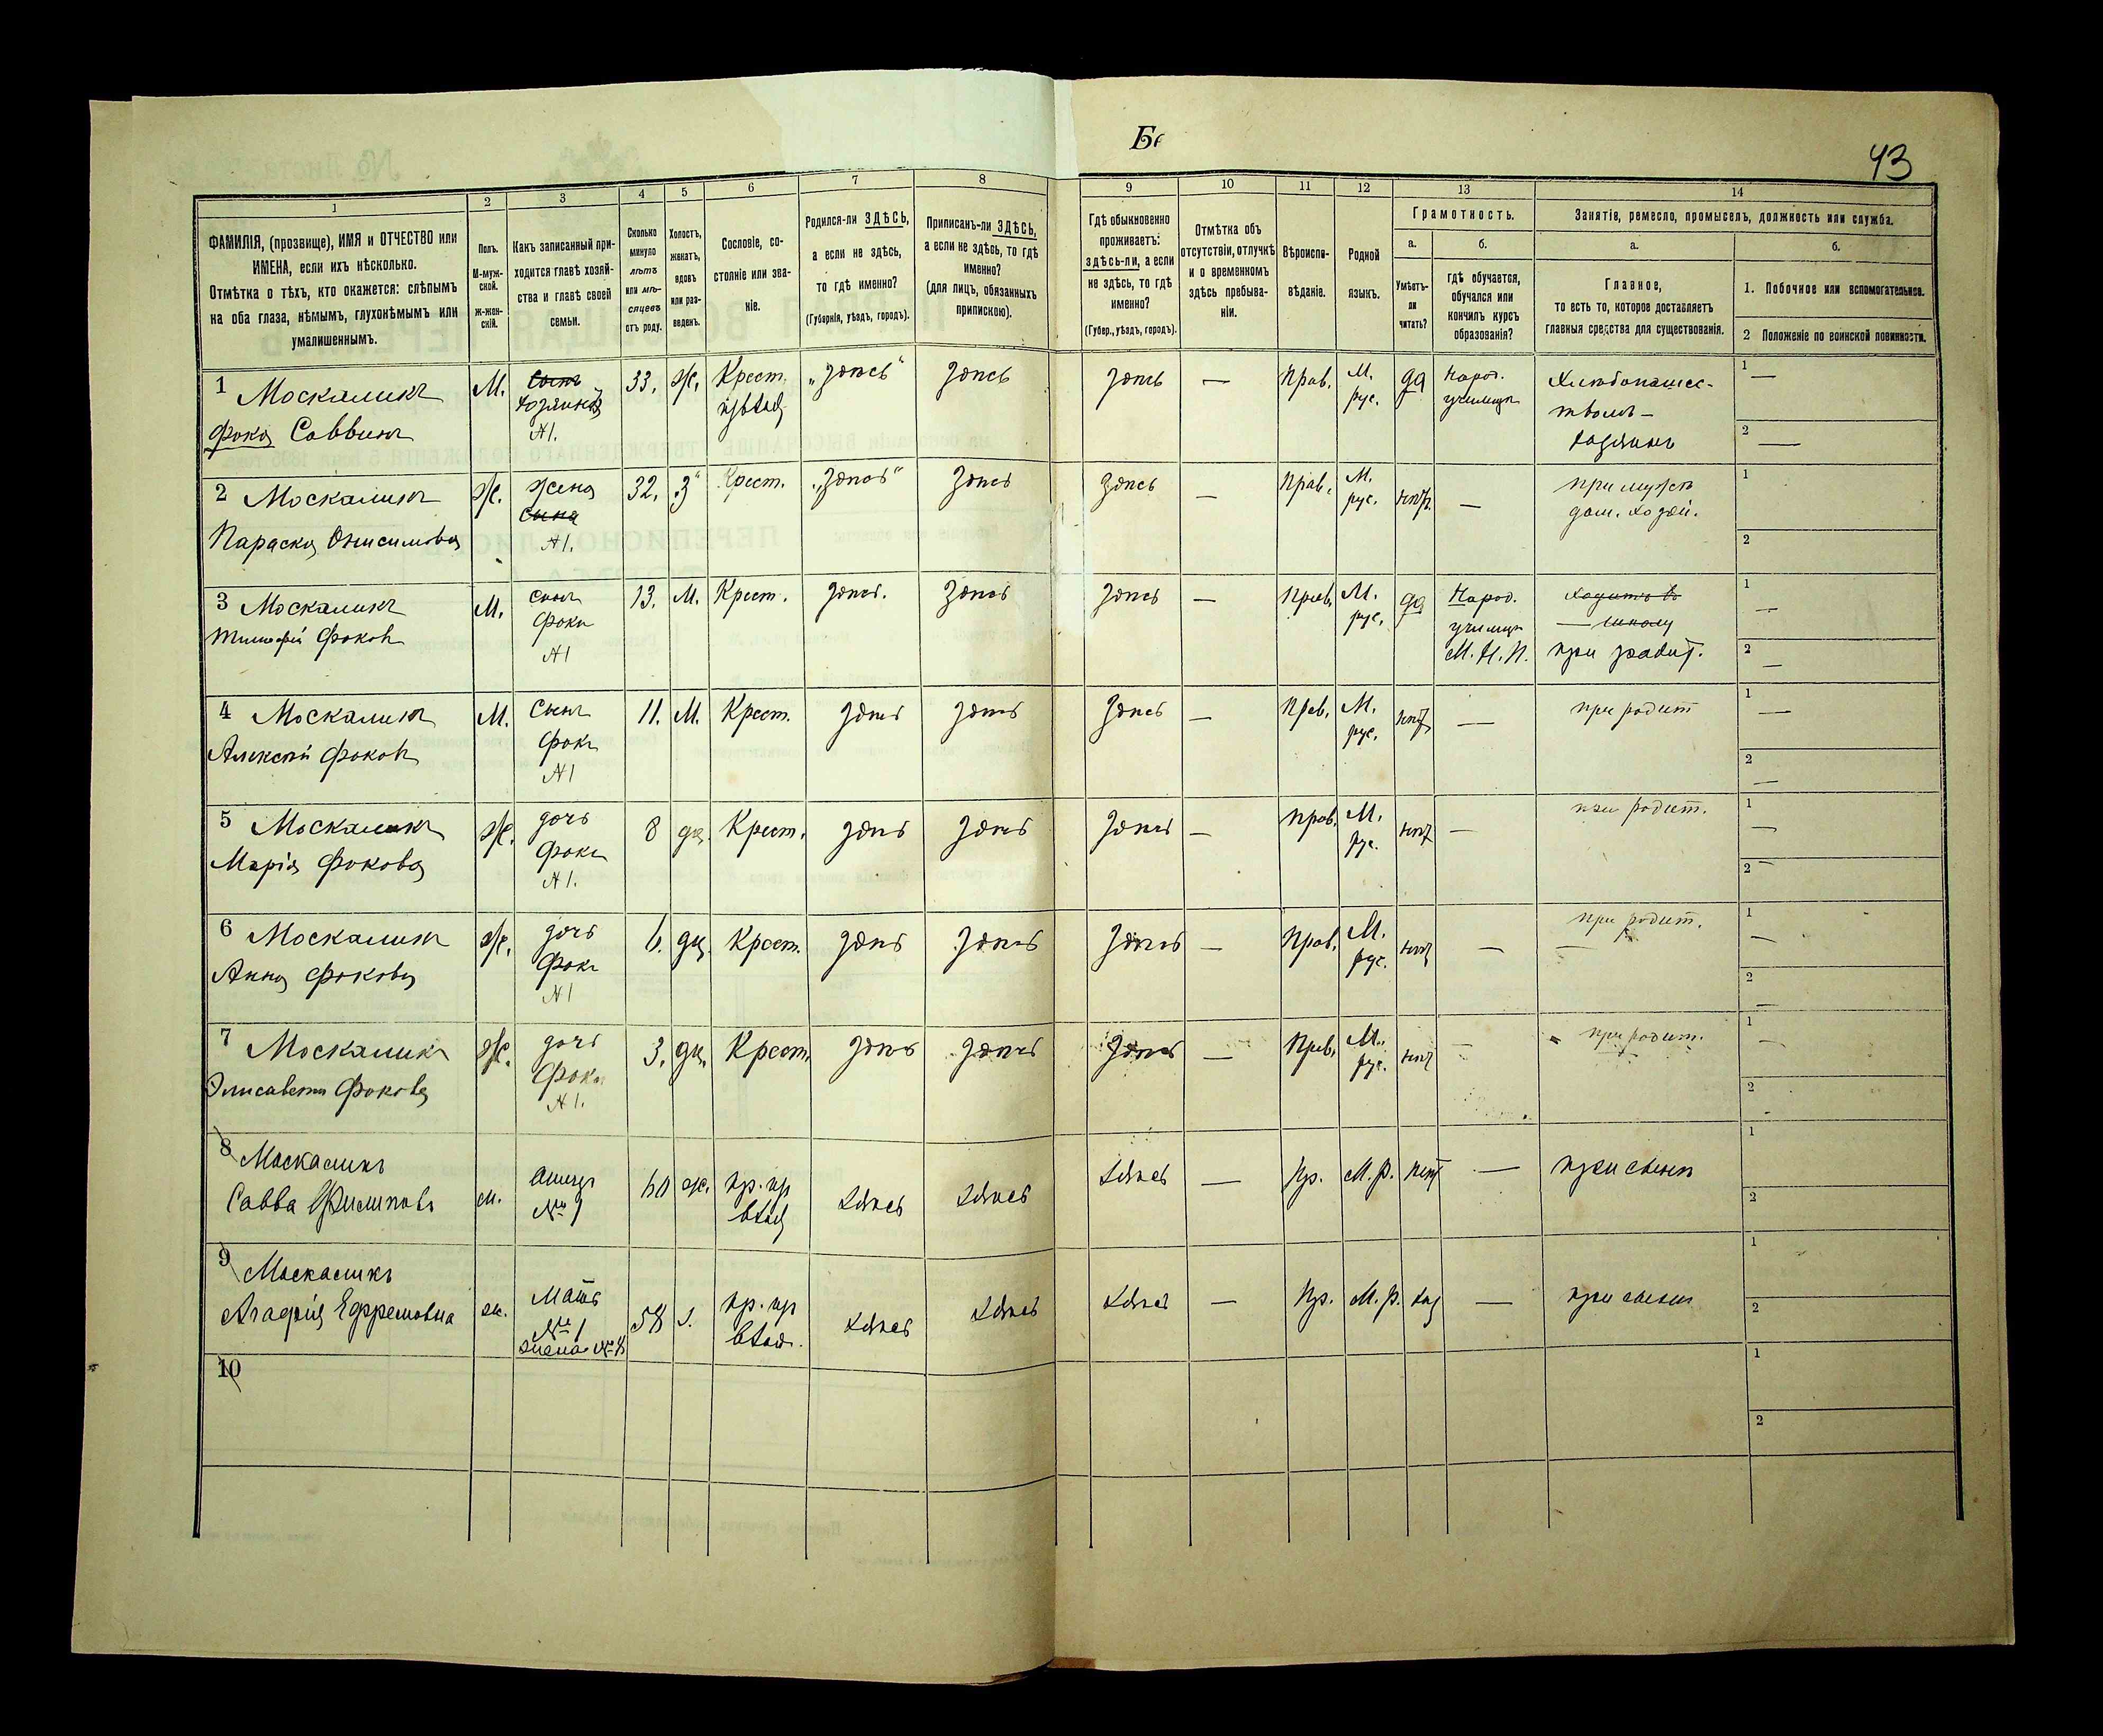 Бе
43
1 2 3 4 5 6 7 8 9 10 11 12 13 14
ФАМИЛІЯ, (прозвище), ИМЯ и ОТЧЕСТВО или
ИМЕНА, если ихъ нѣсколько.
Отмѣтка о тѣхъ, кто окажется: слѣпымъ
на оба глаза, нѣмымъ, глухонѣмымъ или
умалишеннымъ.
Полъ.
М-муж-
ской.
Ж-жен-
скій.
Какъ записанный при-
ходится главѣ хозяй-
ства и главѣ своей
семьи.
Сколько
минуло
лѣтъ
или мѣ-
сяцевъ
отъ роду.
Холостъ,
женатъ,
вдовъ
или раз-
веденъ.
Сословіе, со-
стояніе или зва-
ніе.
Родился-ли ЗДѢСЬ,
а если не здѣсь,
то гдѣ именно?
(Губернія, уѣздъ, городъ).
Приписанъ-ли ЗДѢСЬ,
а если не здѣсь, то гдѣ
именно?
(для лицъ, обязанныхъ
припискою).
Гдѣ обыкновенно
проживаетъ:
здѣсь-ли, а если
не здѣсь, то гдѣ
именно?
(Губер., уѣздъ, городъ).
Отмѣтка объ
отсутствіи, отлучкѣ
и о временномъ
здѣсь пребыва-
ніи.
Вѣроиспо-
вѣданіе.
Родной
языкъ.
Грамотность.
а.
Умѣетъ-
ли
читать?
б.
гдѣ обучается,
обучался или
кончилъ курсъ
образованія?
Занятіе, ремесло, промыселъ, должность или служба.
а.
Главное,
то есть то, которое доставляетъ
главныя средства для существованія.
б.
1. Побочное или вспомогательное.
2 Положеніе по воинской повинности.
1 Москаликъ
Фока Саввинъ
М.
хозяинъ
N1.
33. Ж. Крест.
„здѣсь“ здѣсь здѣсь — Прав. М.
рус.
да Народ.
училище
Хлебопашес-
твомъ –
хозяинъ
1 —
2 —
2 Москаликъ
Параска Онисимова
Ж. жена
сына
N1.
32. З Крест. „здѣсь“ здѣсь здѣсь — Прав. М.
рус.
нѣтъ —
при мужѣ
дом. хозяй.
1
2
3 Москаликъ
Тимофей Фоковъ
М. сынъ
Фоки
N1
13. М. Крест. здѣсь. здѣсь здѣсь — Прав. М.
рус.
да Народ.
училище
М. Н. П.
ходитъ въ
— школу
при родит.
1 —
2 —
4 Москаликъ
Алексѣй Фоковъ
М. Сынъ
Фоки
N1
11. М. Крест. здѣсь здѣсь здѣсь — Прав. М.
рус.
нѣтъ — при родит
1 —
2 —
5 Москаликъ
Марія Фокова
Ж. дочь
Фоки
N1.
8 дц. Крест. здѣсь здѣсь здѣсь — Прав. М.
рус.
нѣтъ — при родит.
1 —
2 —
6 Москаликъ
Анна Фокова
Ж. дочь
Фоки
N1
6. дц. Крест. здѣсь здѣсь здѣсь — Прав. М.
рус.
нѣтъ — при родит.
—
1 —
2 —
7 Москаликъ
Элисавета Фокова
Ж. дочь
Фоки
N1.
3. дц. Крест. здѣсь здѣсь здѣсь — Прав. М.
рус.
нѣтъ — при родит.
1 —
2 -
8 Москаликъ
Савва Филиповъ
м. отецъ
№ 1
60 ж. здѣсь здѣсь здѣсь — Пр. М.р. нѣтъ — при сынѣ
1
2
9 Москаликъ
Агафія Ефремовна
ж. Мать
№ 1
жена № 8
58 з. здѣсь здѣсь здѣсь — Пр. М.р. — при сынѣ
1
2
10
1
2